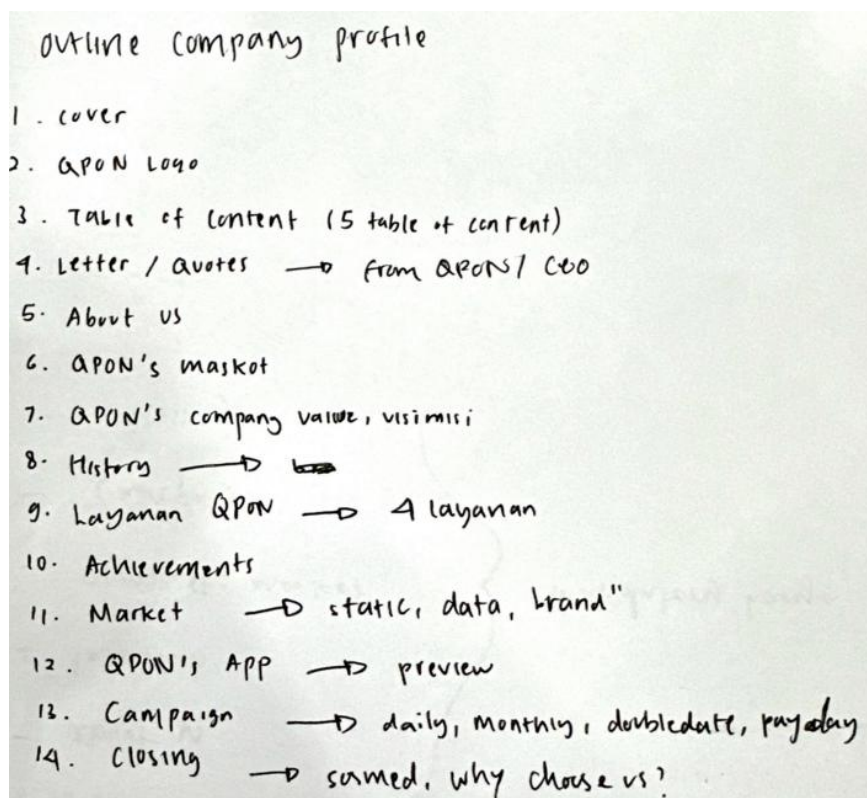 outline company profile
1. cover
2. QPON Logo
3. Table of Content (5 table of content)
4. Letter / Quotes → from QPON / CEO
5. About us
6. QPON's maskot
7. QPON's company value, visimisi
8. History →
9. Layanan QPON → 4 layanan
10. Achievements
11. Market → static, data, brand"
12. QPON's App → preview
13. Campaign → daily, monthly, doubledate, payday
14. Closing → sosmed, why choose us?